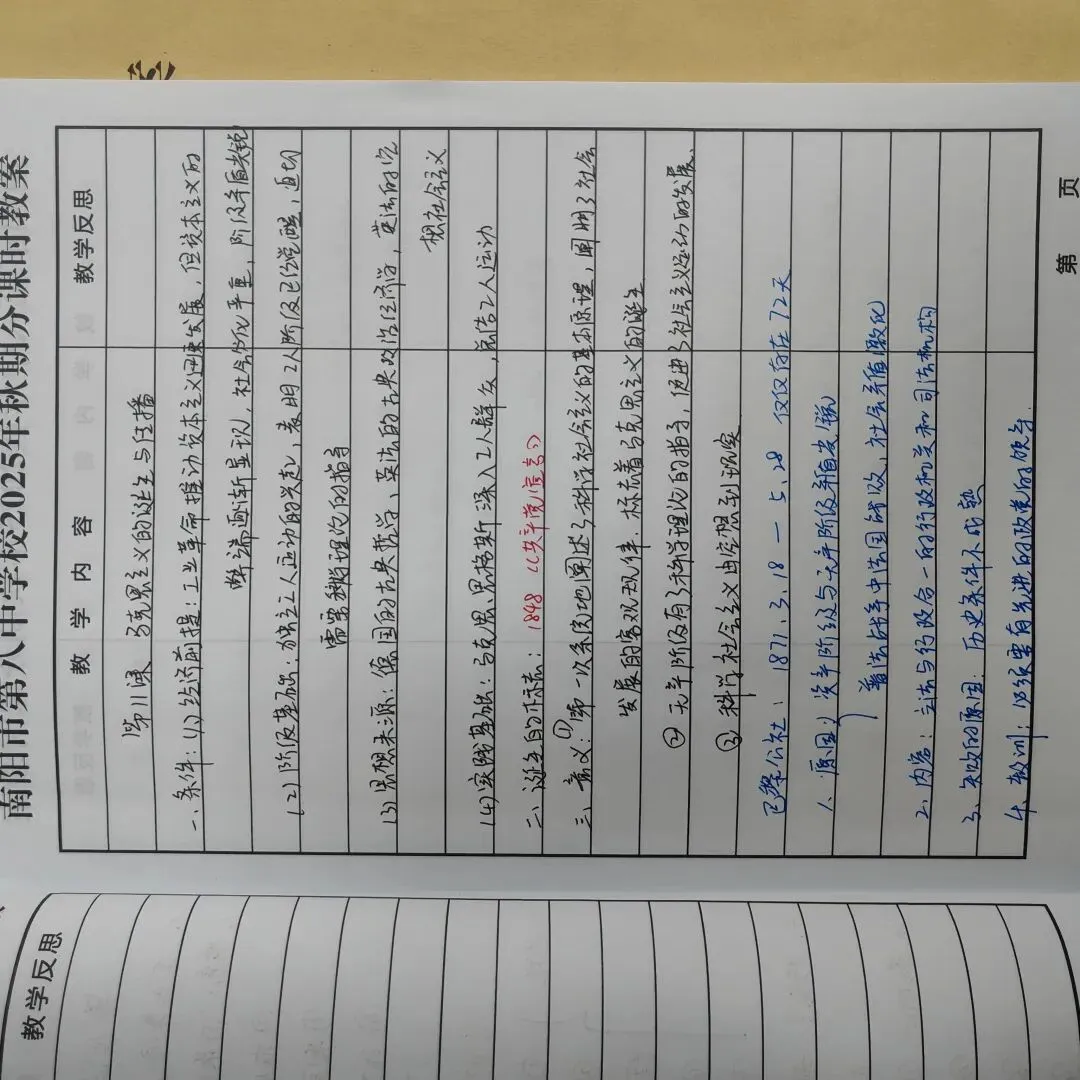 南阳市第八中学校2025年秋期分课时教案
教 学 内 容 教学反思
第11课 马克思主义的诞生与传播
一、条件：(1)经济前提：工业革命推动资本主义迅速发展，但资本主义的
弊端逐渐显现，社会分化严重，阶级矛盾尖锐
(2)阶级基础：独立工人运动的兴起，表明工人阶级已经觉醒，迫切
需要科学理论的指导
(3)思想来源：德国的古典哲学，英国的古典政治经济学，英法的空
想社会主义
(4)实践基础：马克思恩格斯深入工人群众，总结工人运动
二、诞生的标志：1848《共产党宣言》
三、意义：①第一次系统地阐述了科学社会主义的基本原理，阐明了社会
发展的客观规律，标志着马克思主义的诞生
②无产阶级有了科学理论的指导，促进了社会主义运动的发展、
③科学社会主义由空想到现实
巴黎公社：1871.3.18—5.28 仅仅存在72天
1、原因：资产阶级与无产阶级矛盾发展
普法战争中法国战败，社会矛盾激化
2、内容：立法与行政合一的行政机关和司法机构
3、失败的原因：历史条件不成熟
4、教训：必须要有先进的政党的领导
第 页
教学反思